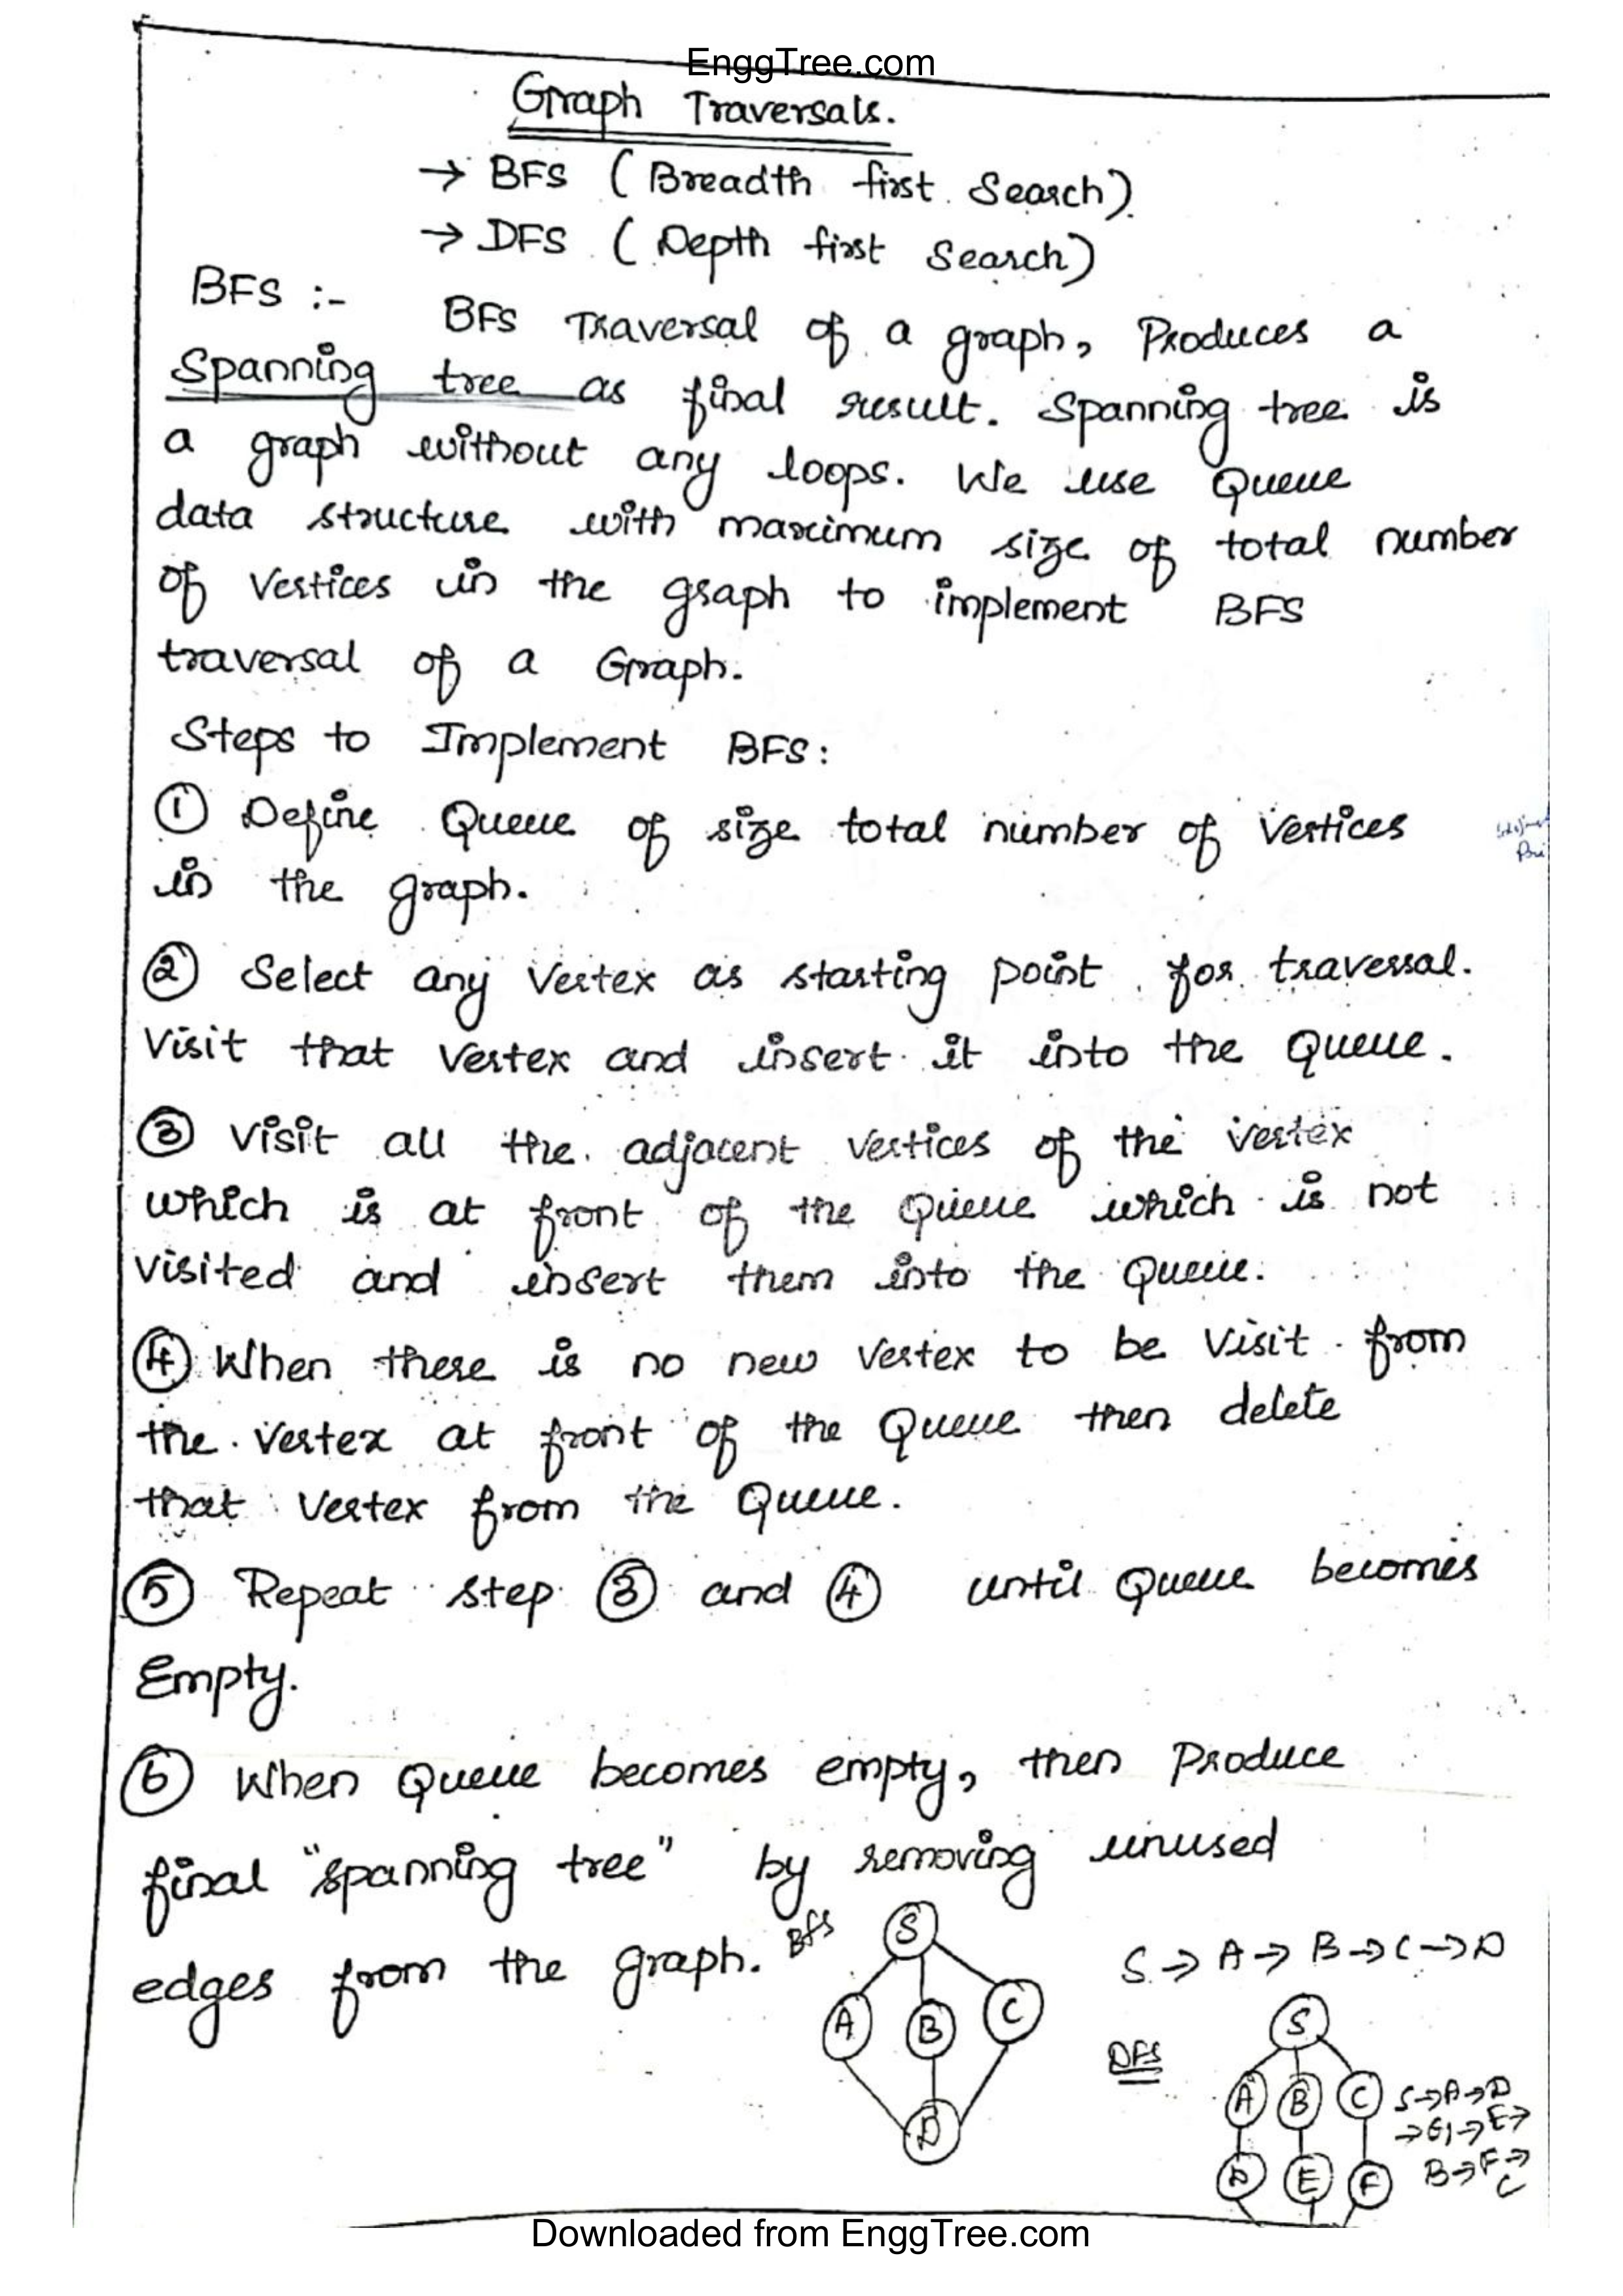 EnggTree.com
Graph Traversals.
→ BFS (Breadth first Search)
→ DFS (Depth first Search)
BFS :- BFS Traversal of a graph, Produces a
Spanning tree as final result. Spanning tree is
a graph without any loops. We use Queue
data structure with maximum size of total number
of Vertices in the graph to implement BFS
traversal of a Graph.
Steps to Implement BFS:
① Define Queue of size total number of Vertices
in the graph.
② Select any Vertex as starting point for traversal.
Visit that Vertex and insert it into the Queue.
③ Visit all the adjacent Vertices of the vertex
which is at front of the Queue which is not
visited and insert them into the Queue.
④ When there is no new Vertex to be Visit from
the Vertex at front of the Queue then delete
that Vertex from the Queue.
⑤ Repeat step ③ and ④ until Queue becomes
Empty.
⑥ When Queue becomes empty, then Produce
final "spanning tree" by removing unused
edges from the graph.
Bfs
S
A B C
D
S → A → B → C → D
DFS
S
A B C
D E F
S → A → D
→ G → E →
B → F →
C
Downloaded from EnggTree.com